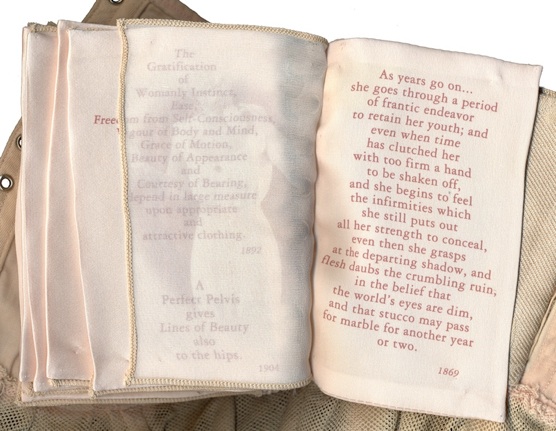 The
Gratification
of
Womanly Instinct,
Ease,
Freedom from Self-Consciousness,
Vigour of Body and Mind,
Grace of Motion,
Beauty of Appearance
and
Courtesy of Bearing,
depend in large measure
upon appropriate
and
attractive clothing.
1892
A
Perfect Pelvis
gives
Lines of Beauty
also
to the hips.
1904
As years go on...
she goes through a period
of frantic endeavor
to retain her youth; and
even when time
has clutched her
with too firm a hand
to be shaken off,
and she begins to feel
the infirmities which
she still puts out
all her strength to conceal,
even then she grasps
at the departing shadow, and
flesh daubs the crumbling ruin,
in the belief that
the world's eyes are dim,
and that stucco may pass
for marble for another year
or two.
1869